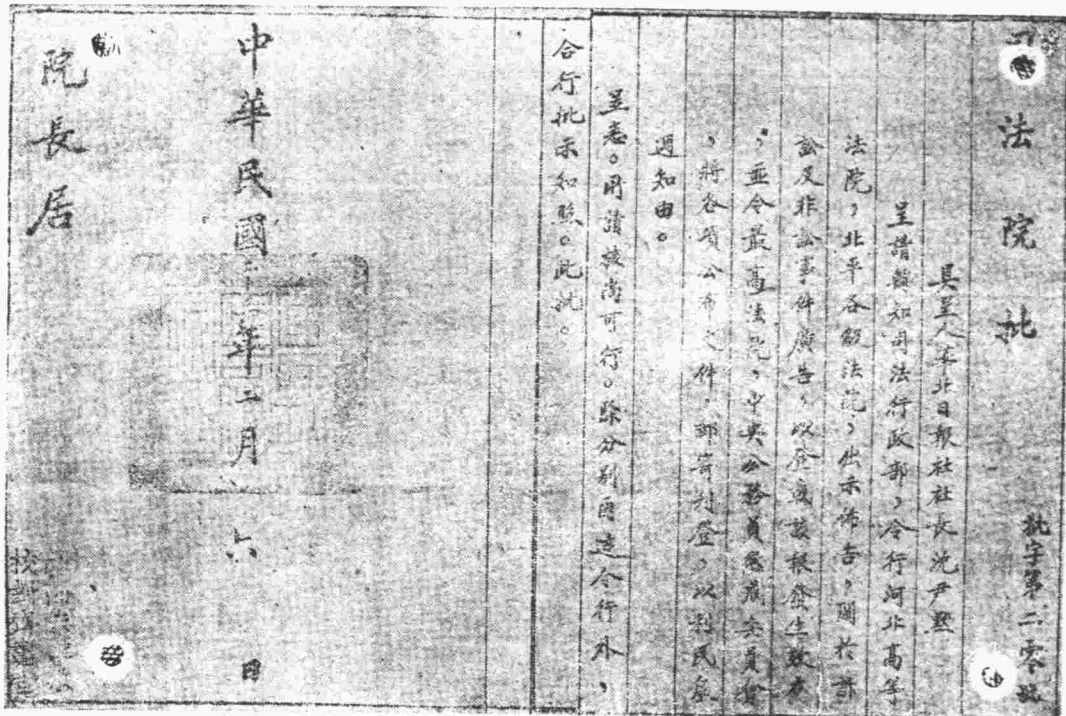 司法院批
批字第二零號
具呈人華北日報社社長沈尹默
呈請轉知司法行政部，令行河北高等
法院，北平各級法院，出示佈告，關於訴
訟及非訟事件廣告，以登載該報發生效力
，並令最高法院，中央公務員懲戒委員會
，將各項公布文件，郵寄刊登，以利民衆
週知由。
呈悉。所請核尚可行。除分別函達令行外，
合行批示知照。此批。
中華民國二十一年二月六日
院長居